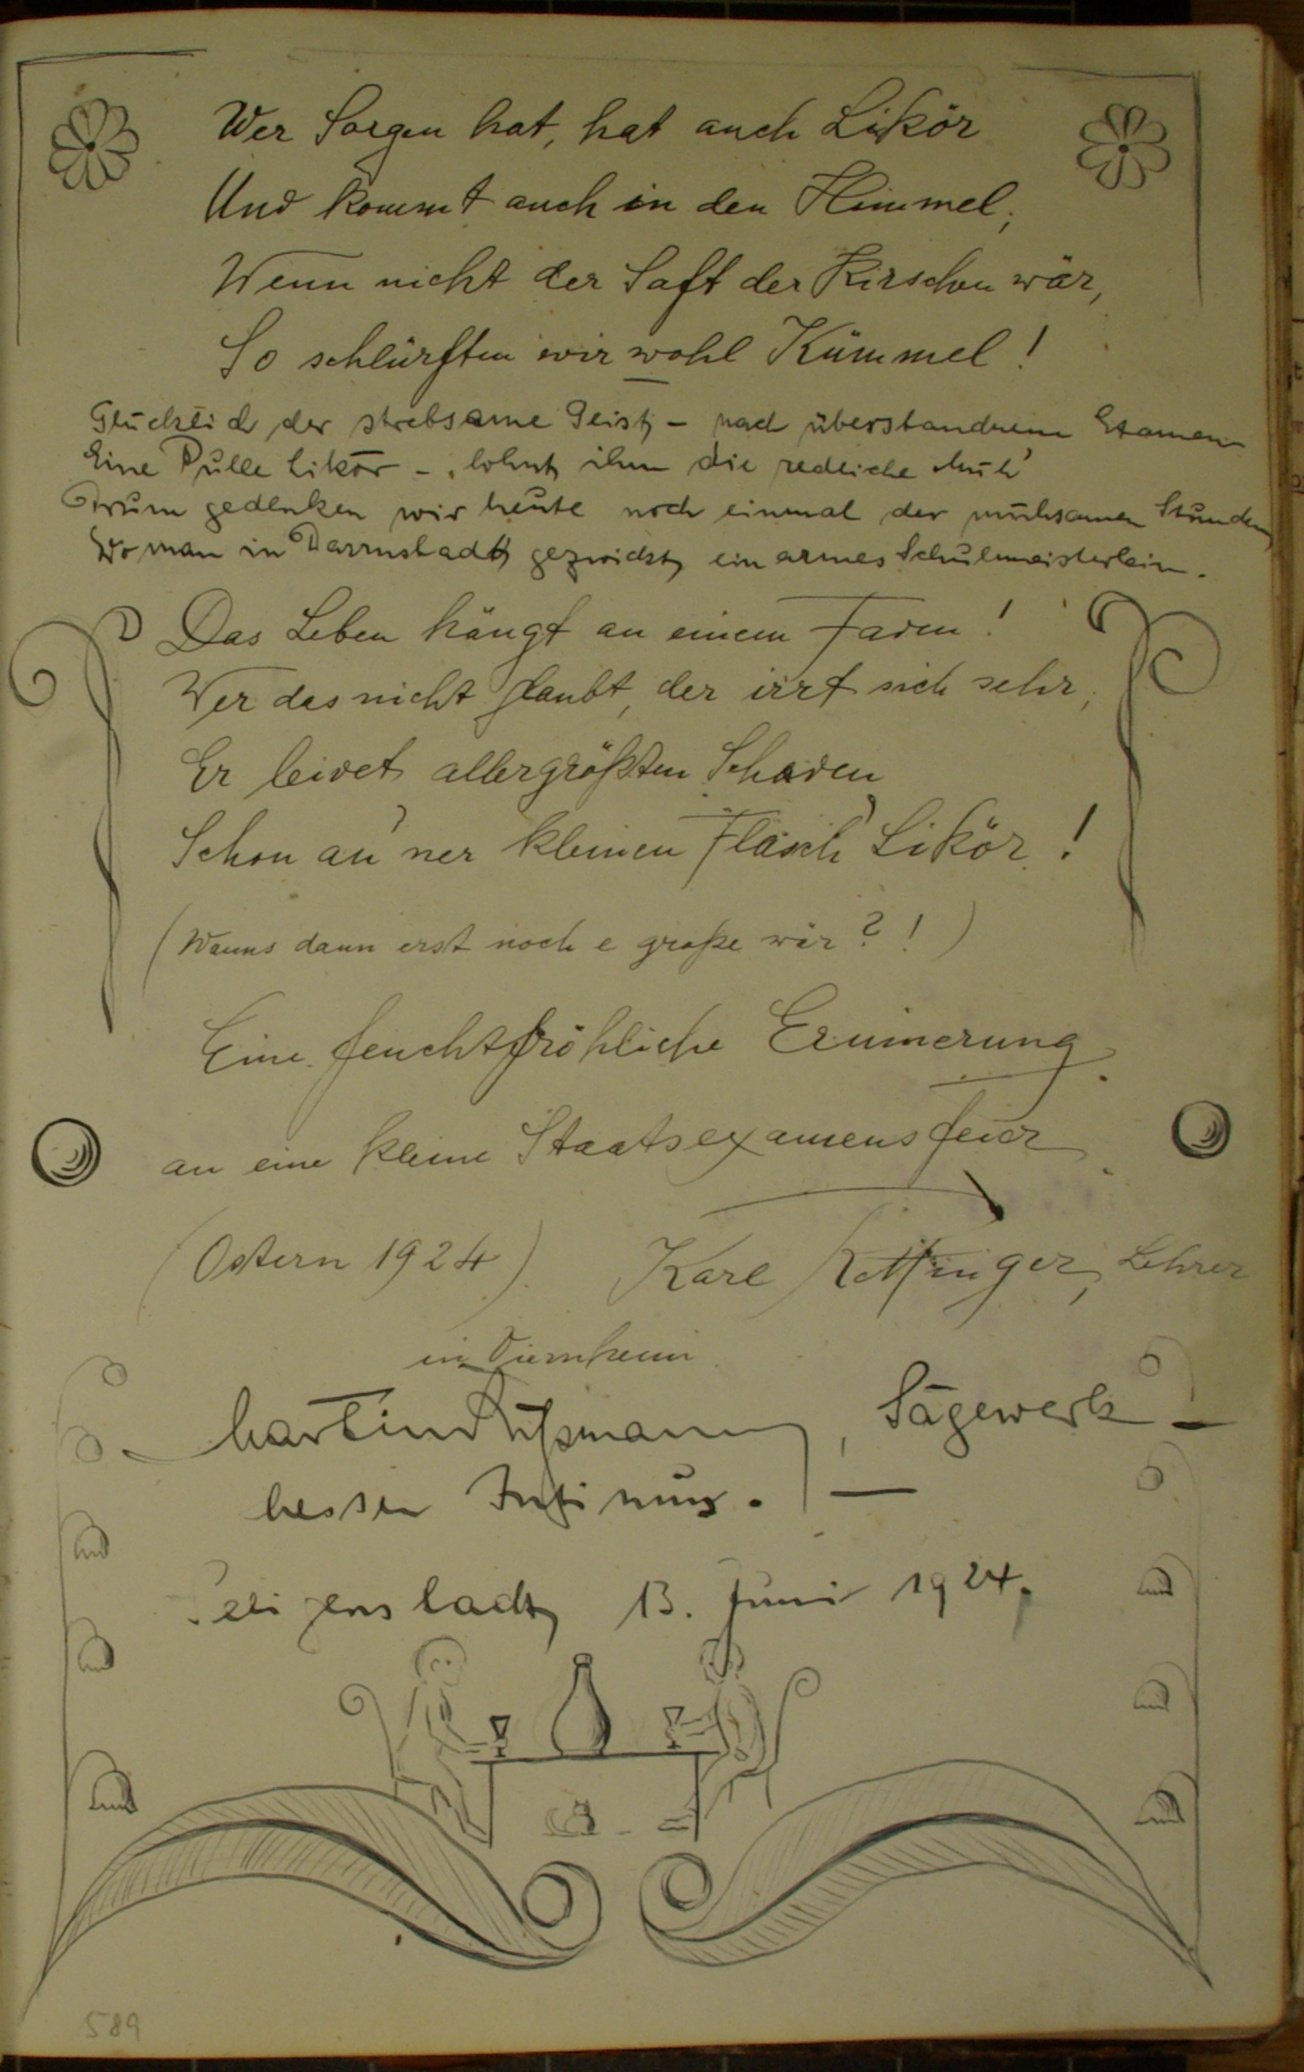 Wer Sorgen hat, hat auch Likör
Und kommt auch in den Himmel,
Wenn nicht der Saft der Kirschen wär,
So schlürften wir wohl Kümmel!
Glücklich der strebsame Geist, – nach überstandnem Examen
Eine Pulle Likör – lohnt ihm die redliche Müh'
Drum gedenken wir heute noch einmal der mühsamen Stunden
Wo man in Darmstadt gezwickt ein armes Schulmeisterlein.
Das Leben hängt an einem Faden!
Wer das nicht glaubt, der irrt sich sehr,
Er leidet allergrößten Schaden
Schon an 'ner kleinen Fläsch' Likör!
(Wanns dann erst noch e große wär?!)
Eine feuchtfröhliche Erinnerung
an eine kleine Staatsexamensfeier
(Ostern 1924) Karl Lehrer
in Viernheim
Sägewerk –
dessen Intimus. –
Seligenstadt, 13. Juni 1924.
589